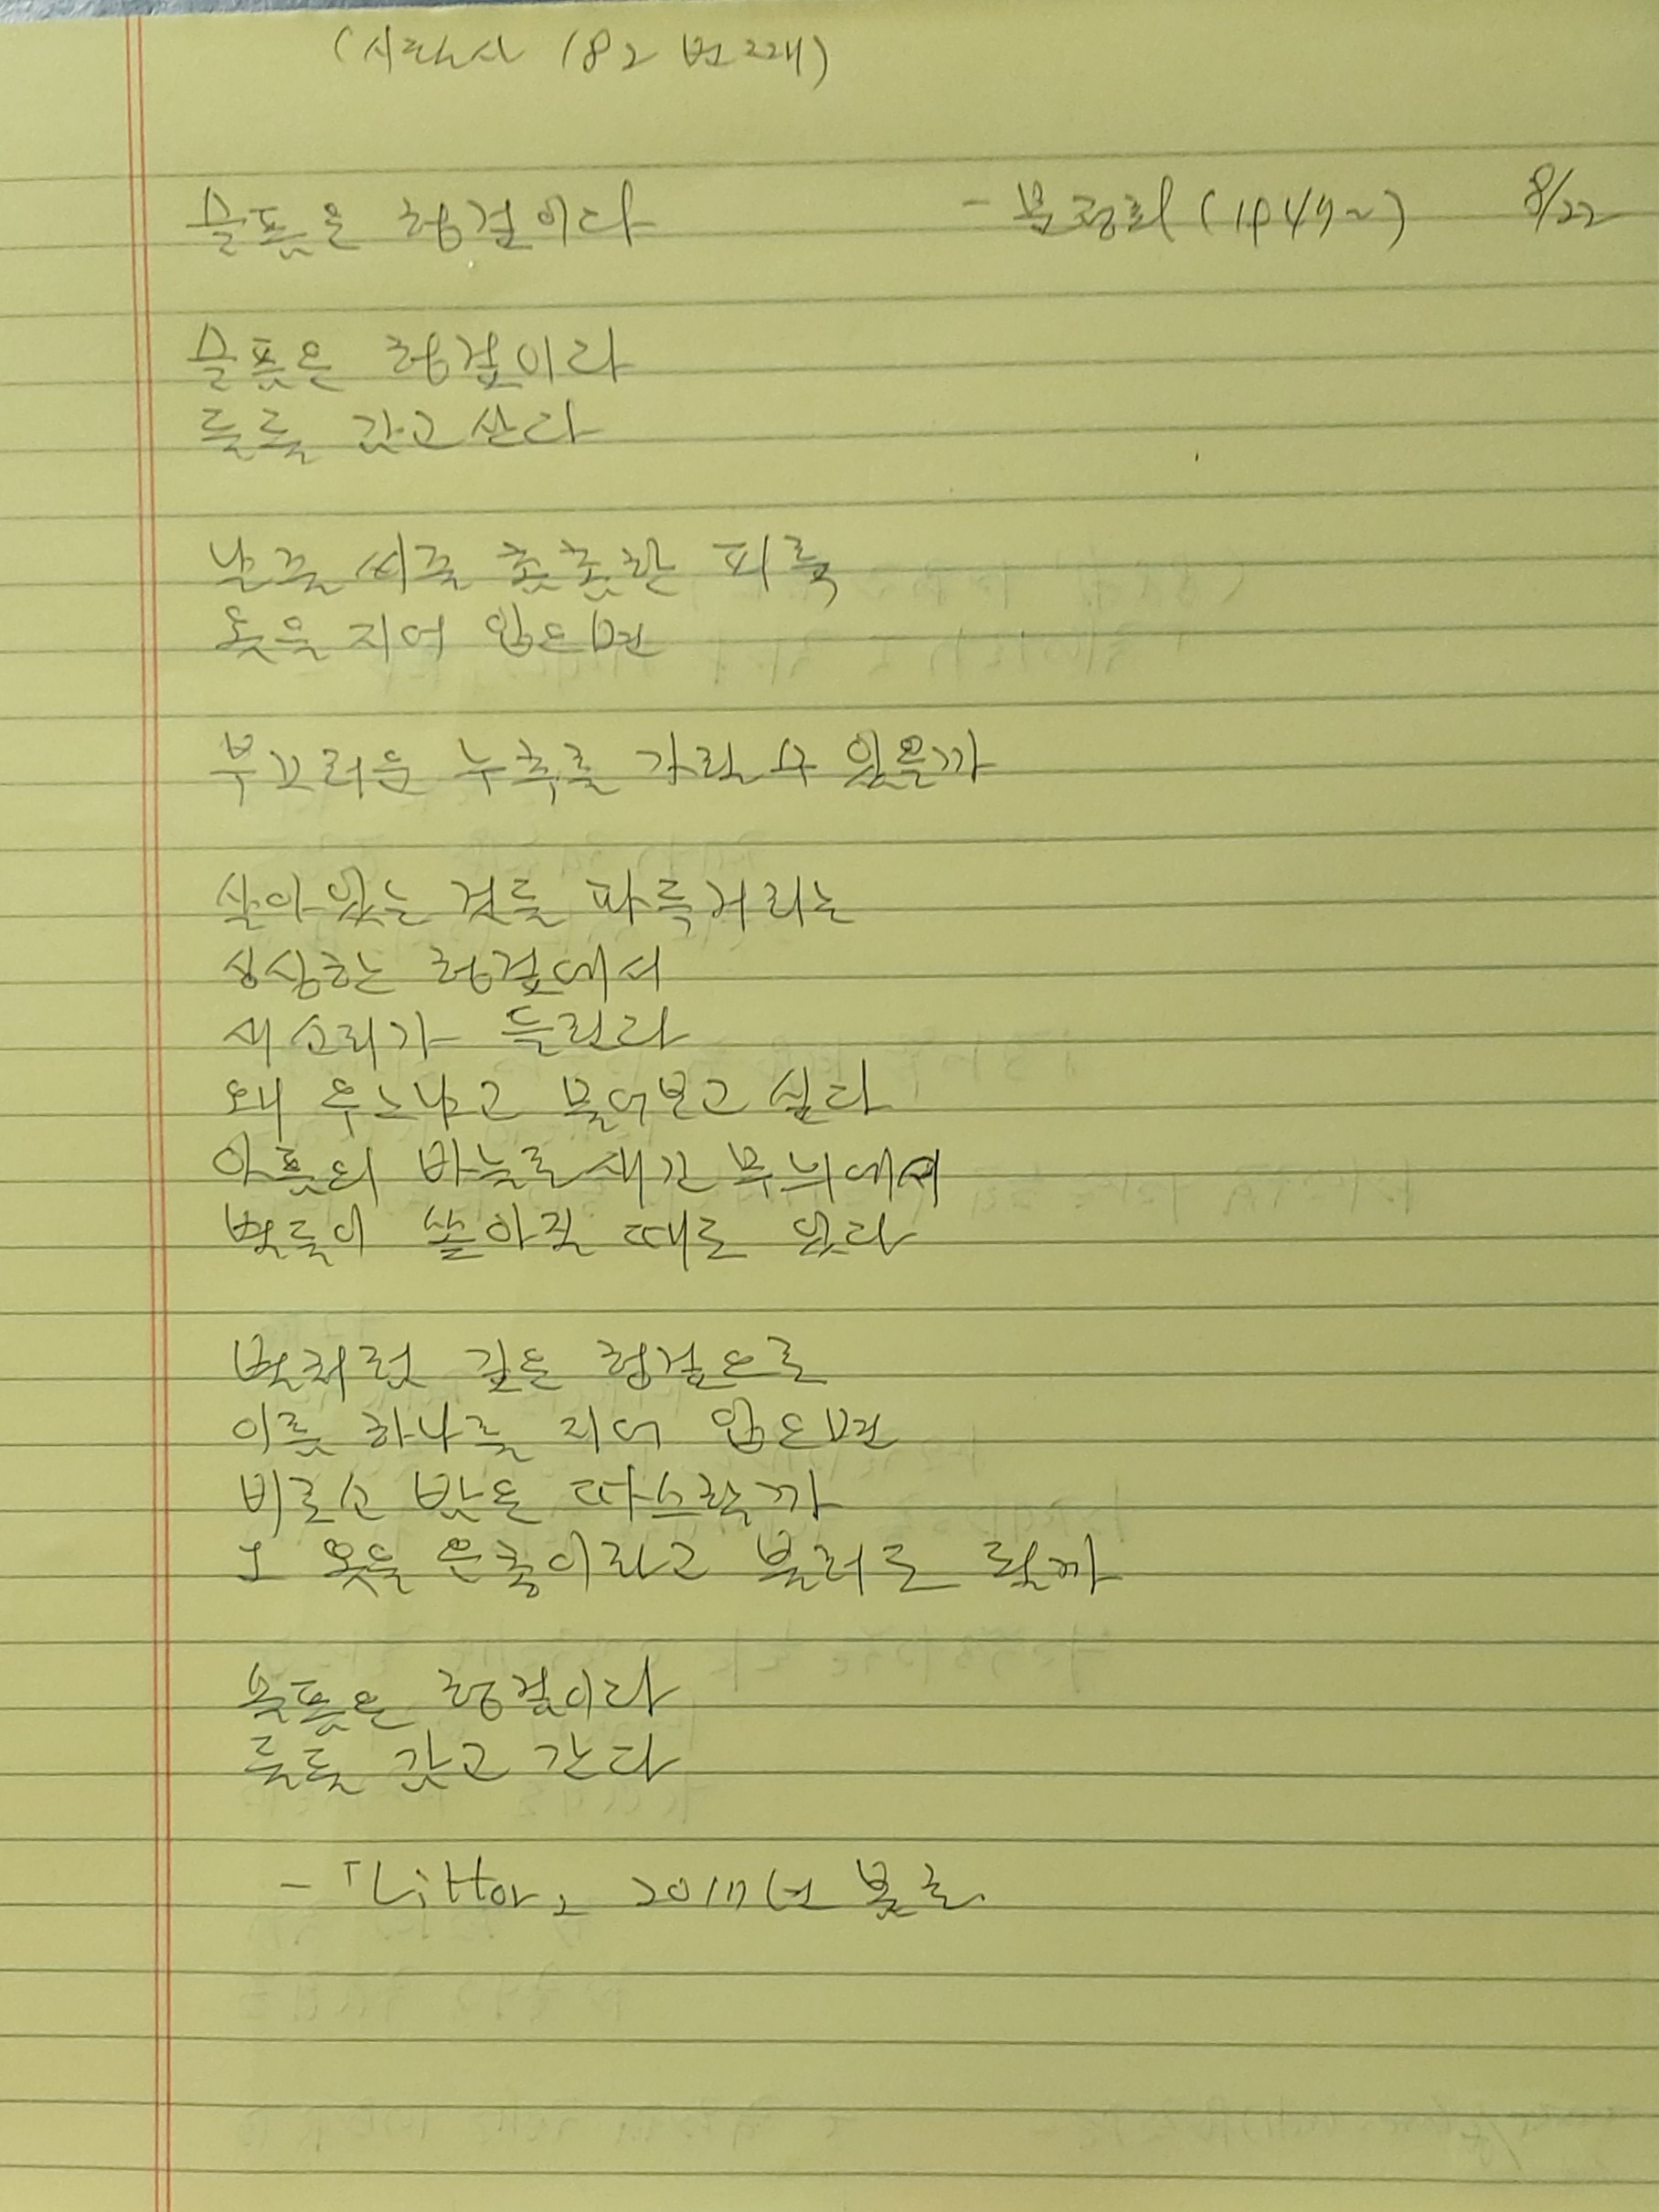 (시란사 182 번째)
슬픔은 헝겊이다 - 문정희 (1947~) 8/22
슬픔은 헝겊이다
둘둘 감고 산다
날줄 씨줄 촘촘한 피륙
옷을 지어 입으면
부끄러운 누추를 가릴 수 있을까
살아있는 것들 파득거리는
싱싱한 헝겊에서
새소리가 들린다
왜 우느냐고 물어보고 싶다
아픔의 바늘로 새긴 무늬에서
별들이 쏟아질 때도 있다
별처럼 깊은 헝겊으로
이름 하나를 지어 입으면
비로소 밤은 따스할까
그 옷을 은총이라고 불러도 될까
슬픔은 헝겊이다
둘둘 감고 간다
-「Littor」 2017년 봄호